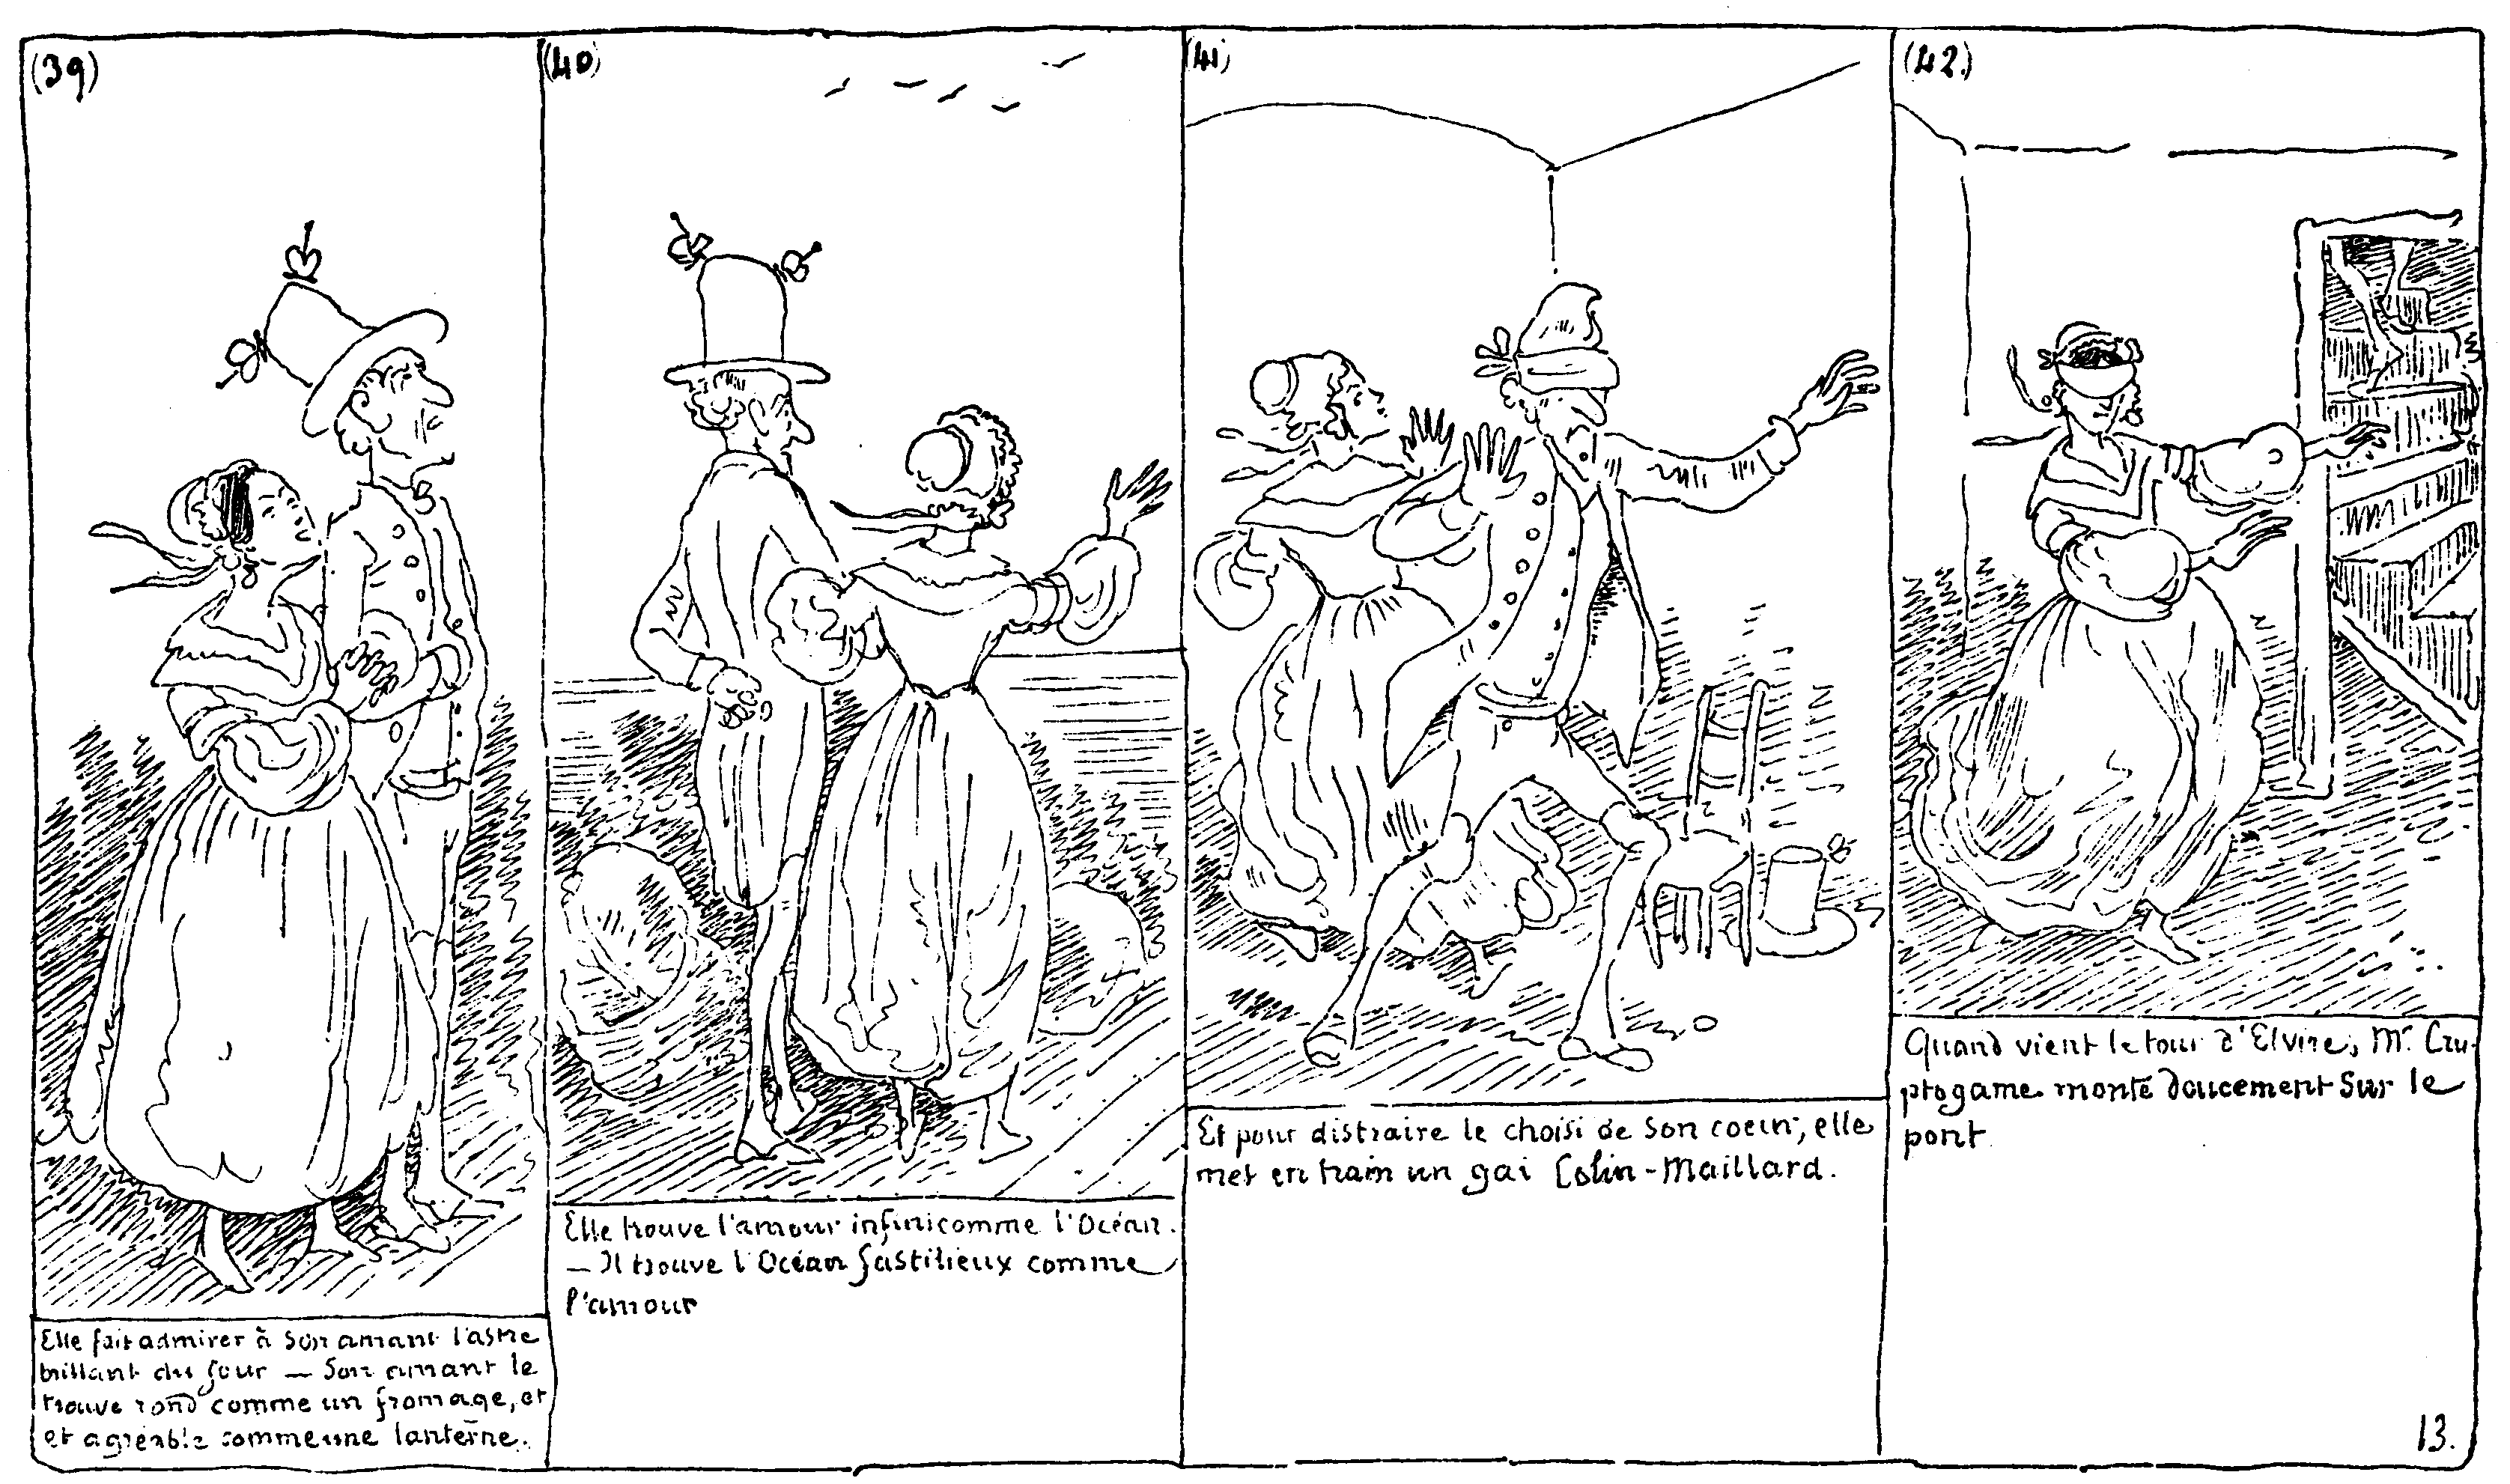 (39)
Elle fait admirer à son amant l'astre
brillant du jour — Son amant le
trouve rond comme un fromage, et
et agréable comme une lanterne.
(40)
Elle trouve l'amour infini comme l'Océan.
— Il trouve l'Océan fastilieux comme
l'amour
(41)
Et pour distraire le choisi de son coeur, elle
met en train un gai Colin-Maillard.
(42.)
Quand vient le tour d'Elvire, Mr. Cry-
ptogame monte doucement sur le
pont
13.